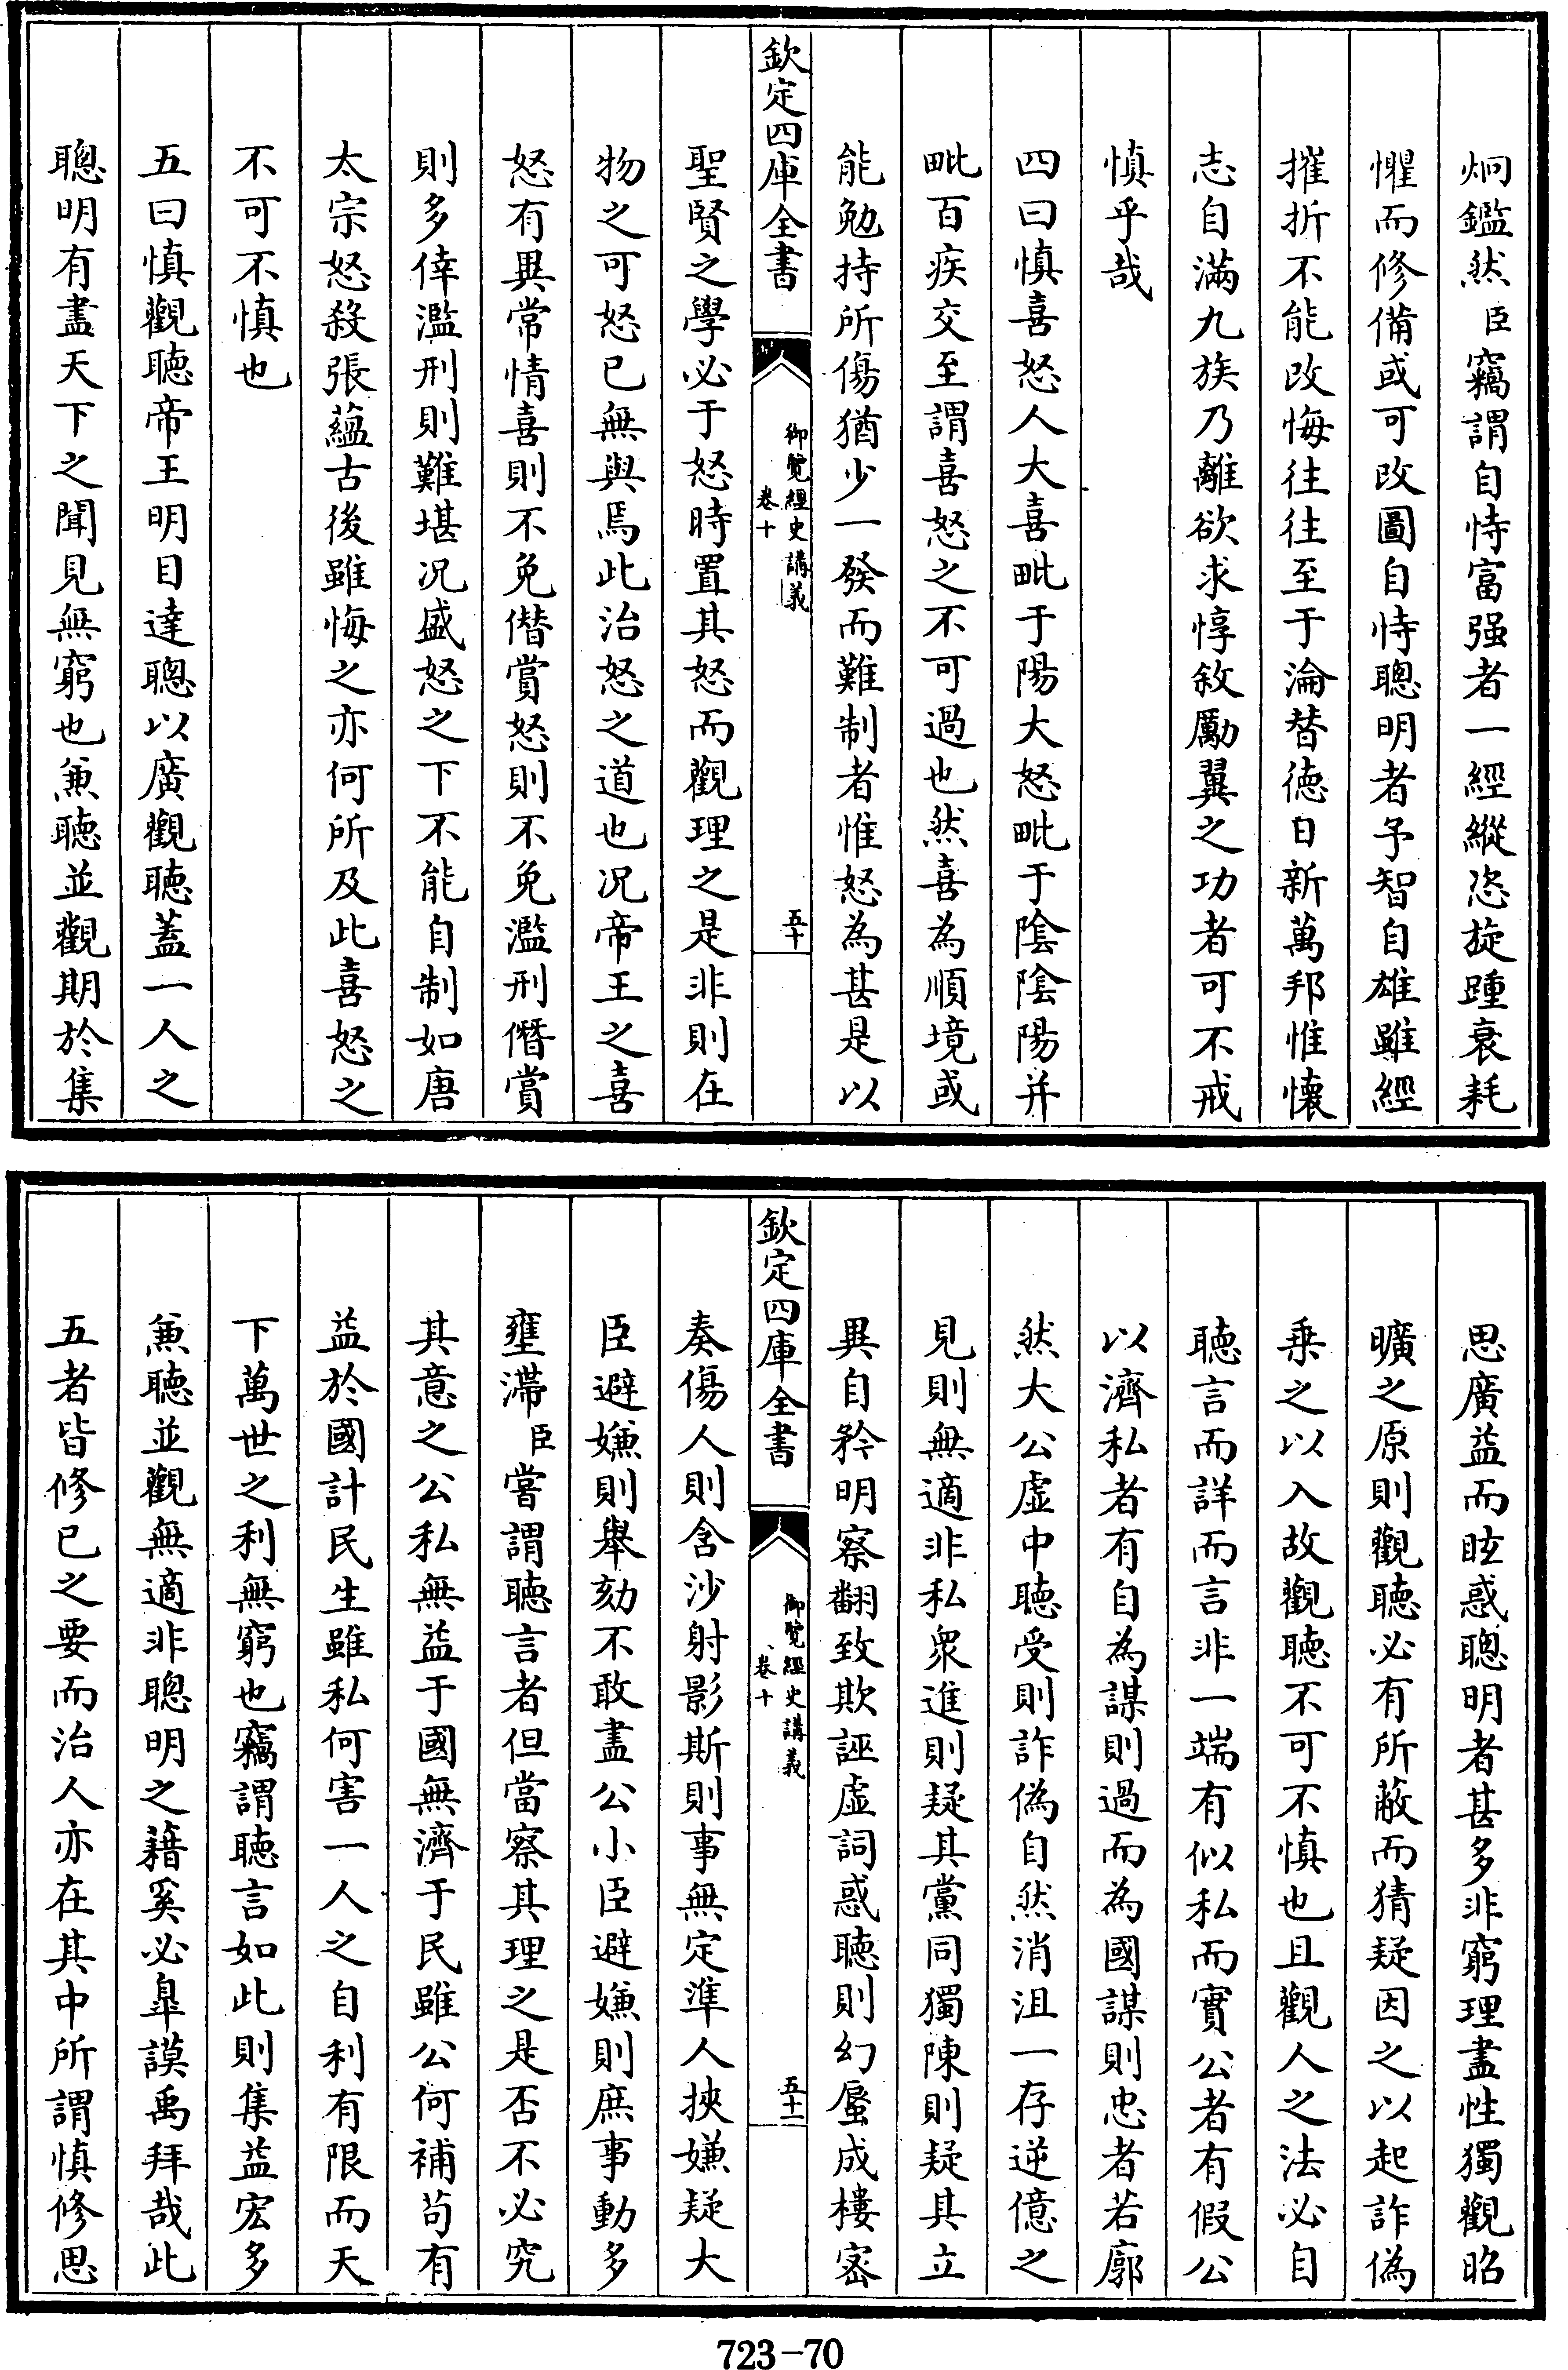 炯鑑然臣竊謂自恃富强者一經縱恣旋踵衰耗
懼而修備或可改圖自恃聰明者予智自雄雖經
摧折不能改悔往往至于淪替徳日新萬邦惟懷
志自滿九族乃離欲求惇敘勵翼之功者可不戒
慎乎哉
四曰慎喜怒人大喜毗于陽大怒毗于陰陰陽并
毗百疾交至謂喜怒之不可過也然喜為順境或
能勉持所傷猶少一發而難制者惟怒為甚是以
欽定四庫全書
御覽經史講義
卷十
五十
聖賢之學必于怒時置其怒而觀理之是非則在
物之可怒已無與焉此治怒之道也况帝王之喜
怒有異常情喜則不免僭賞怒則不免濫刑僭賞
則多倖濫刑則難堪况盛怒之下不能自制如唐
太宗怒殺張蘊古後雖悔之亦何所及此喜怒之
不可不慎也
五曰慎觀聽帝王明目達聰以廣觀聽蓋一人之
聰明有盡天下之聞見無窮也兼聽並觀期於集
思廣益而眩惑聰明者甚多非窮理盡性獨觀昭
曠之原則觀聽必有所蔽而猜疑因之以起詐偽
乗之以入故觀聽不可不慎也且觀人之法必自
聽言而詳而言非一端有似私而實公者有假公
以濟私者有自為謀則過而為國謀則忠者若廓
然大公虛中聽受則詐偽自然消沮一存逆億之
見則無適非私衆進則疑其黨同獨陳則疑其立
異自矜明察翻致欺誣虛詞惑聽則幻蜃成樓密
欽定四庫全書
御覽經史講義
卷十
五十一
奏傷人則含沙射影斯則事無定準人挾嫌疑大
臣避嫌則舉劾不敢盡公小臣避嫌則庶事動多
壅滯臣嘗謂聽言者但當察其理之是否不必究
其意之公私無益于國無濟于民雖公何補苟有
益於國計民生雖私何害一人之自利有限而天
下萬世之利無窮也竊謂聽言如此則集益宏多
兼聽並觀無適非聰明之藉奚必臯謨禹拜哉此
五者皆修已之要而治人亦在其中所謂慎修思
723-70